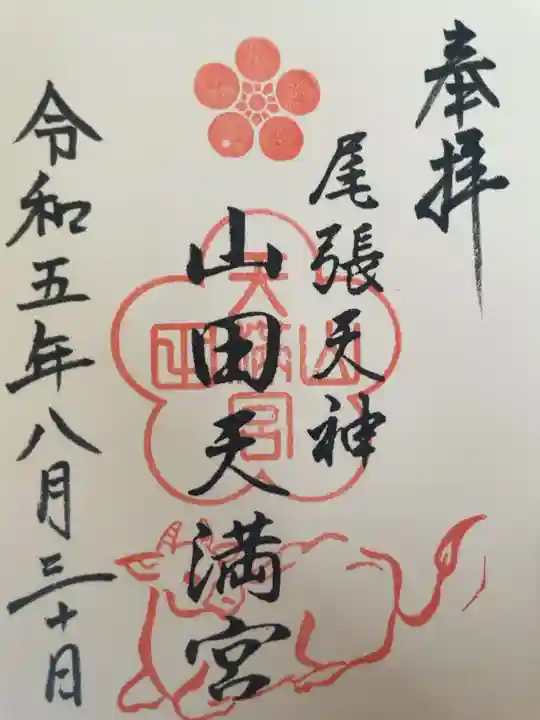 奉拝
尾張天神
山田天満宮
山田
天満宮
令和五年八月三十日